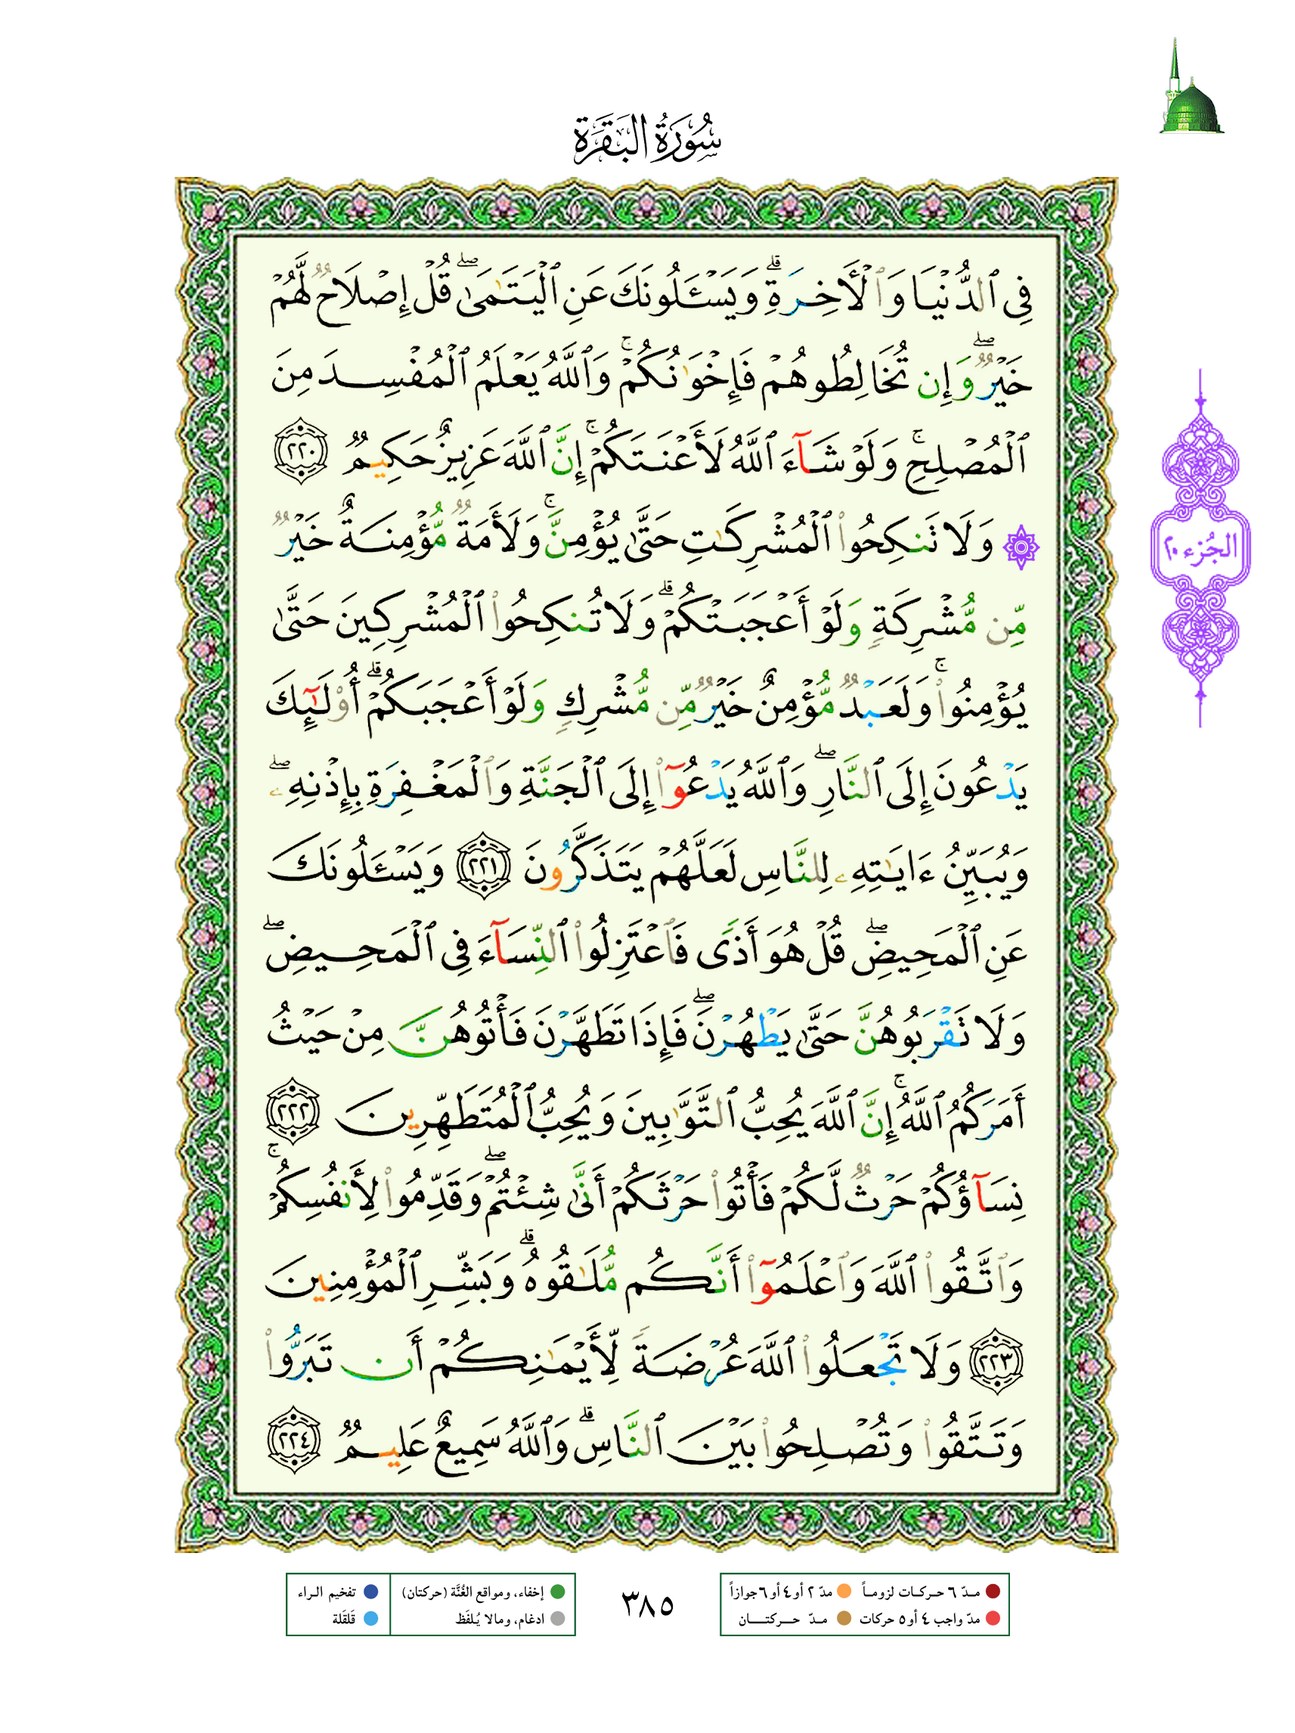 سُورَةُ البَقَرَة
فِي ٱلدُّنْيَا وَٱلْأَخِرَةِ ۗ وَيَسْـَٔلُونَكَ عَنِ ٱلْيَتَـٰمَىٰ ۖ قُلْ إِصْلَاحٌ لَّهُمْ
خَيْرٌ ۖ وَإِن تُخَالِطُوهُمْ فَإِخْوَٰنُكُمْ ۚ وَٱللَّهُ يَعْلَمُ ٱلْمُفْسِدَ مِنَ
ٱلْمُصْلِحِ ۚ وَلَوْ شَآءَ ٱللَّهُ لَأَعْنَتَكُمْ ۚ إِنَّ ٱللَّهَ عَزِيزٌ حَكِيمٌ ٢٢٠
۞ وَلَا تَنكِحُوا۟ ٱلْمُشْرِكَـٰتِ حَتَّىٰ يُؤْمِنَّ ۚ وَلَأَمَةٌ مُّؤْمِنَةٌ خَيْرٌ
مِّن مُّشْرِكَةٍ وَلَوْ أَعْجَبَتْكُمْ ۗ وَلَا تُنكِحُوا۟ ٱلْمُشْرِكِينَ حَتَّىٰ
يُؤْمِنُوا۟ ۚ وَلَعَبْدٌ مُّؤْمِنٌ خَيْرٌ مِّن مُّشْرِكٍ وَلَوْ أَعْجَبَكُمْ ۗ أُو۟لَـٰٓئِكَ
يَدْعُونَ إِلَى ٱلنَّارِ ۖ وَٱللَّهُ يَدْعُوٓا۟ إِلَى ٱلْجَنَّةِ وَٱلْمَغْفِرَةِ بِإِذْنِهِۦ ۖ
وَيُبَيِّنُ ءَايَـٰتِهِۦ لِلنَّاسِ لَعَلَّهُمْ يَتَذَكَّرُونَ ٢٢١ وَيَسْـَٔلُونَكَ
عَنِ ٱلْمَحِيضِ ۖ قُلْ هُوَ أَذًى فَٱعْتَزِلُوا۟ ٱلنِّسَآءَ فِي ٱلْمَحِيضِ ۖ
وَلَا تَقْرَبُوهُنَّ حَتَّىٰ يَطْهُرْنَ ۖ فَإِذَا تَطَهَّرْنَ فَأْتُوهُنَّ مِنْ حَيْثُ
أَمَرَكُمُ ٱللَّهُ ۚ إِنَّ ٱللَّهَ يُحِبُّ ٱلتَّوَّٰبِينَ وَيُحِبُّ ٱلْمُتَطَهِّرِينَ ٢٢٢
نِسَآؤُكُمْ حَرْثٌ لَّكُمْ فَأْتُوا۟ حَرْثَكُمْ أَنَّىٰ شِئْتُمْ ۖ وَقَدِّمُوا۟ لِأَنفُسِكُمْ ۚ
وَٱتَّقُوا۟ ٱللَّهَ وَٱعْلَمُوٓا۟ أَنَّكُم مُّلَـٰقُوهُ ۗ وَبَشِّرِ ٱلْمُؤْمِنِينَ
٢٢٣ وَلَا تَجْعَلُوا۟ ٱللَّهَ عُرْضَةً لِّأَيْمَـٰنِكُمْ أَن تَبَرُّوا۟
وَتَتَّقُوا۟ وَتُصْلِحُوا۟ بَيْنَ ٱلنَّاسِ ۗ وَٱللَّهُ سَمِيعٌ عَلِيمٌ ٢٢٤
الجُزء ٢٠
مدّ ٦ حركات لزوماً
مدّ ٢ أو ٤ أو ٦ جوازاً
مدّ واجب ٤ أو ٥ حركات
مدّ حركتان
٣٨٥
إخفاء، ومواقع الغُنَّة (حركتان)
تفخيم الراء
ادغام، ومالا يُلفَظ
قَلقَلة